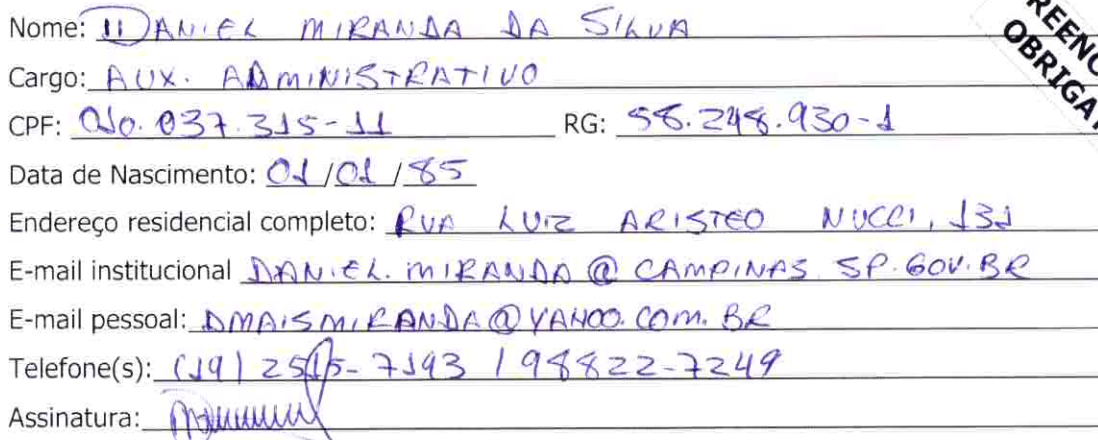 Nome: DANIEL MIRANDA DA SILVA
Cargo: AUX. ADMINISTRATIVO
CPF: 010.037.315-11 RG: 58.248.930-1
Data de Nascimento: 01/01/85
Endereço residencial completo: RUA LUIZ ARISTEO NUCCI, 131
E-mail institucional DANIEL.MIRANDA@CAMPINAS.SP.GOV.BR
E-mail pessoal: DMAISMIRANDA@YAHOO.COM.BR
Telefone(s): (19) 2515-7193 / 98822-7249
Assinatura: